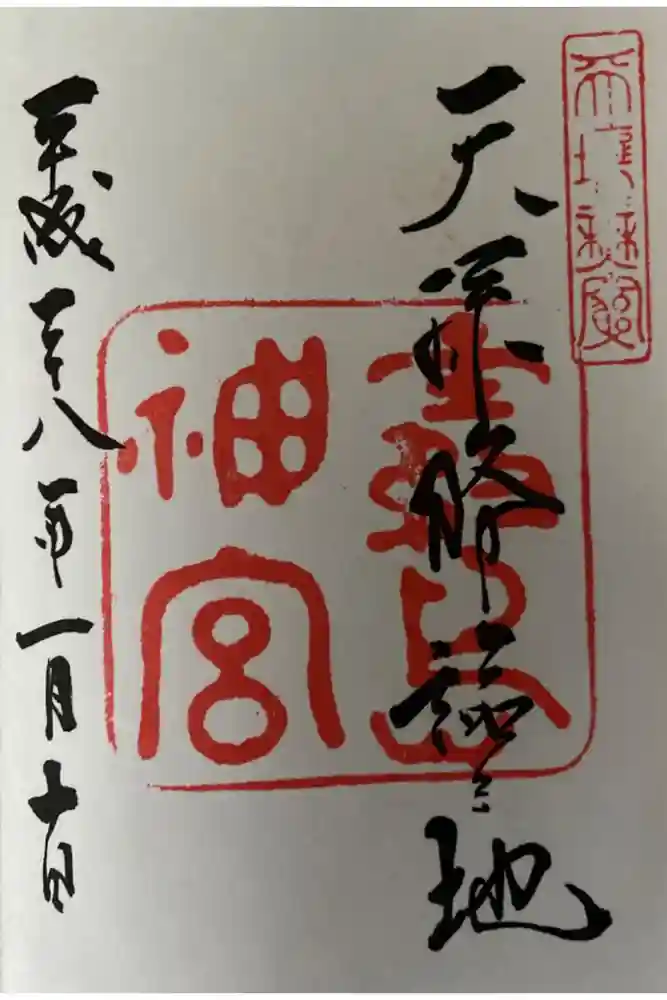 天壌無窮
天孫降臨之地
霧島
神宮
平成二十八年一月十日